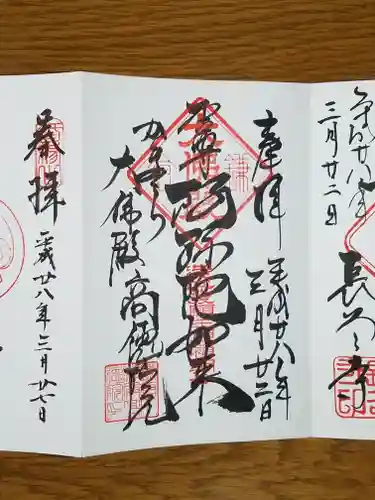 平成廿八年
三月廿二日
長谷寺
奉拝
平成廿八年
三月廿二日
本尊
阿弥陀如来
かまくら
大佛殿
高徳院
奉拝
平成廿八年三月廿七日